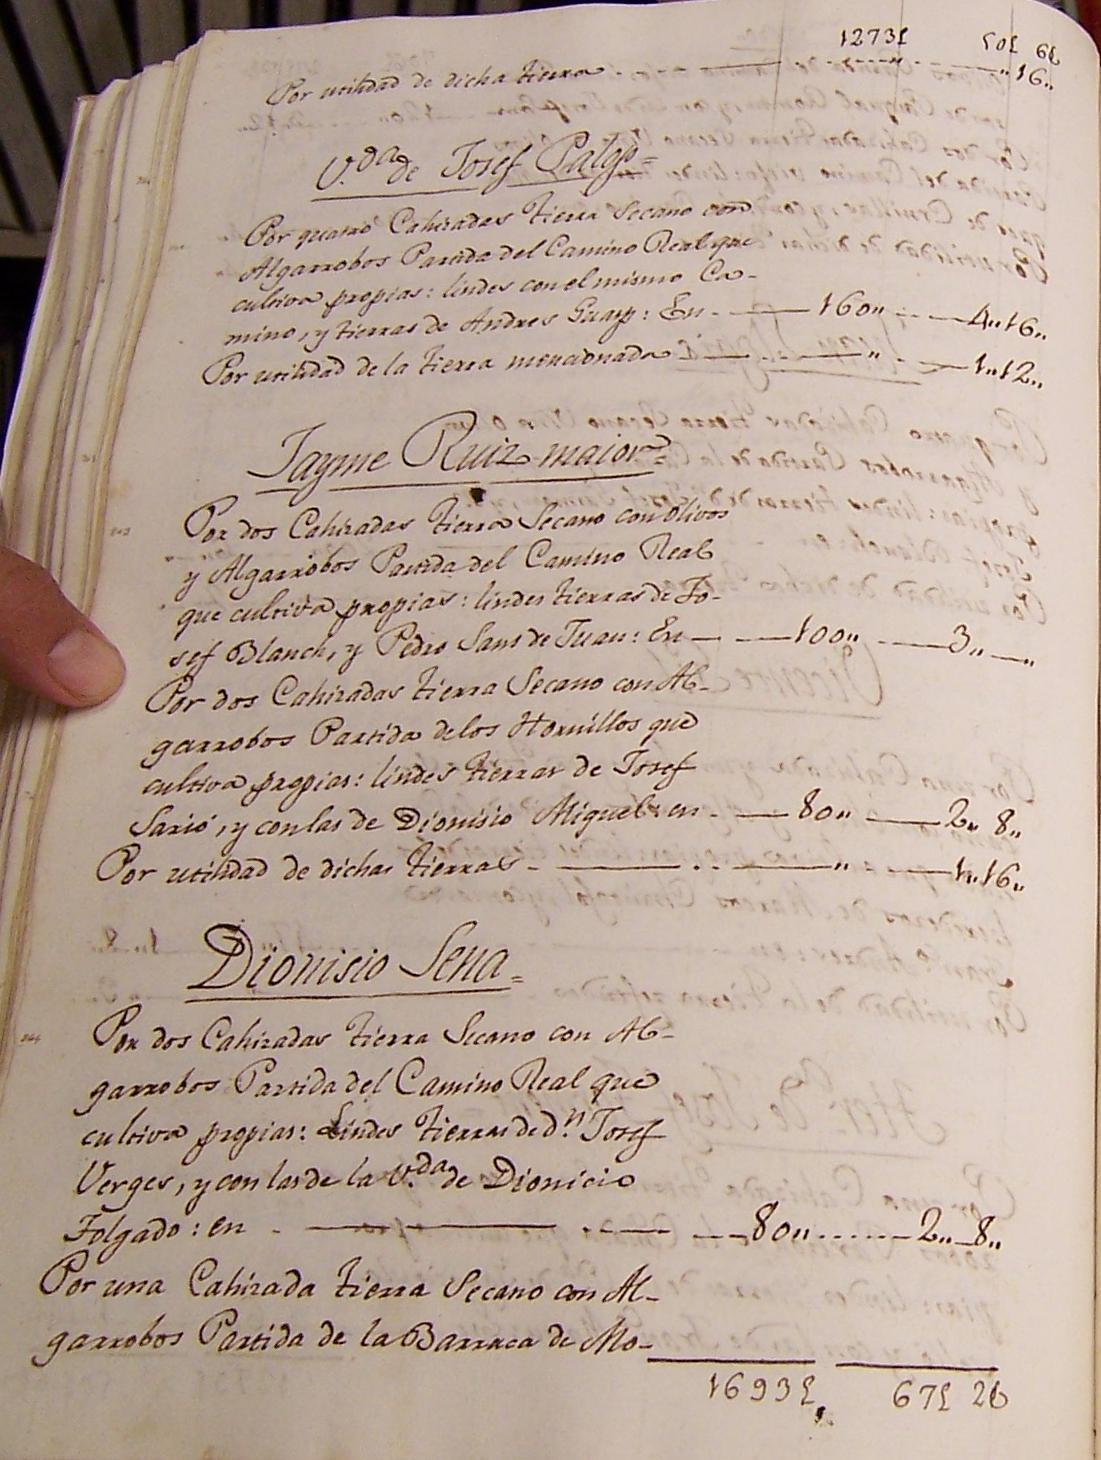 1273£ 50£ 6s
Por utilidad de dicha tierra " 16"
V.da de Josef
Por quatro Cahizadas tierra Secano con
Algarrobos Partida del Camino Real que
cultiva propias: lindes con el mismo Ca-
mino, y tierras de Andres Guasp: En 160" 4" 16"
Por utilidad de la tierra mencionada " 1" 12"
Jayme Ruiz maior=
Por dos Cahizadas tierra Secano con olivos
y Algarrobos Partida del Camino Real
que cultiva propias: lindes tierras de Jo-
sef Blanch, y Pedro Sans de Juan: En 100" 3" "
Por dos Cahizadas tierra Secano con Al-
garrobos Partida de los Hornillos que
cultiva propias: lindes tierras de Josef
Sarió, y con las de Dionisio Miguel: en 80" 2" 8"
Por utilidad de dichas tierras " 1" 16"
Dionisio Sena=
Por dos Cahizadas tierra Secano con Al-
garrobos Partida del Camino Real que
cultiva propias: Lindes tierras de d.n Josef
Verges, y con las de la V.da de Dionicio
Folgado: en 80" 2" 8"
Por una Cahizada tierra Secano con Al-
garrobos Partida de la Barraca de Mo-
1693£ 67£ 2s